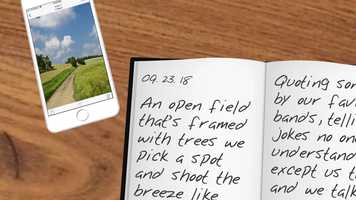 09.23.18
An open field
that's framed
with trees we
pick a spot
and shoot the
breeze like
Quoting
by our
bands,
jokes no
understand
except us
and we talk